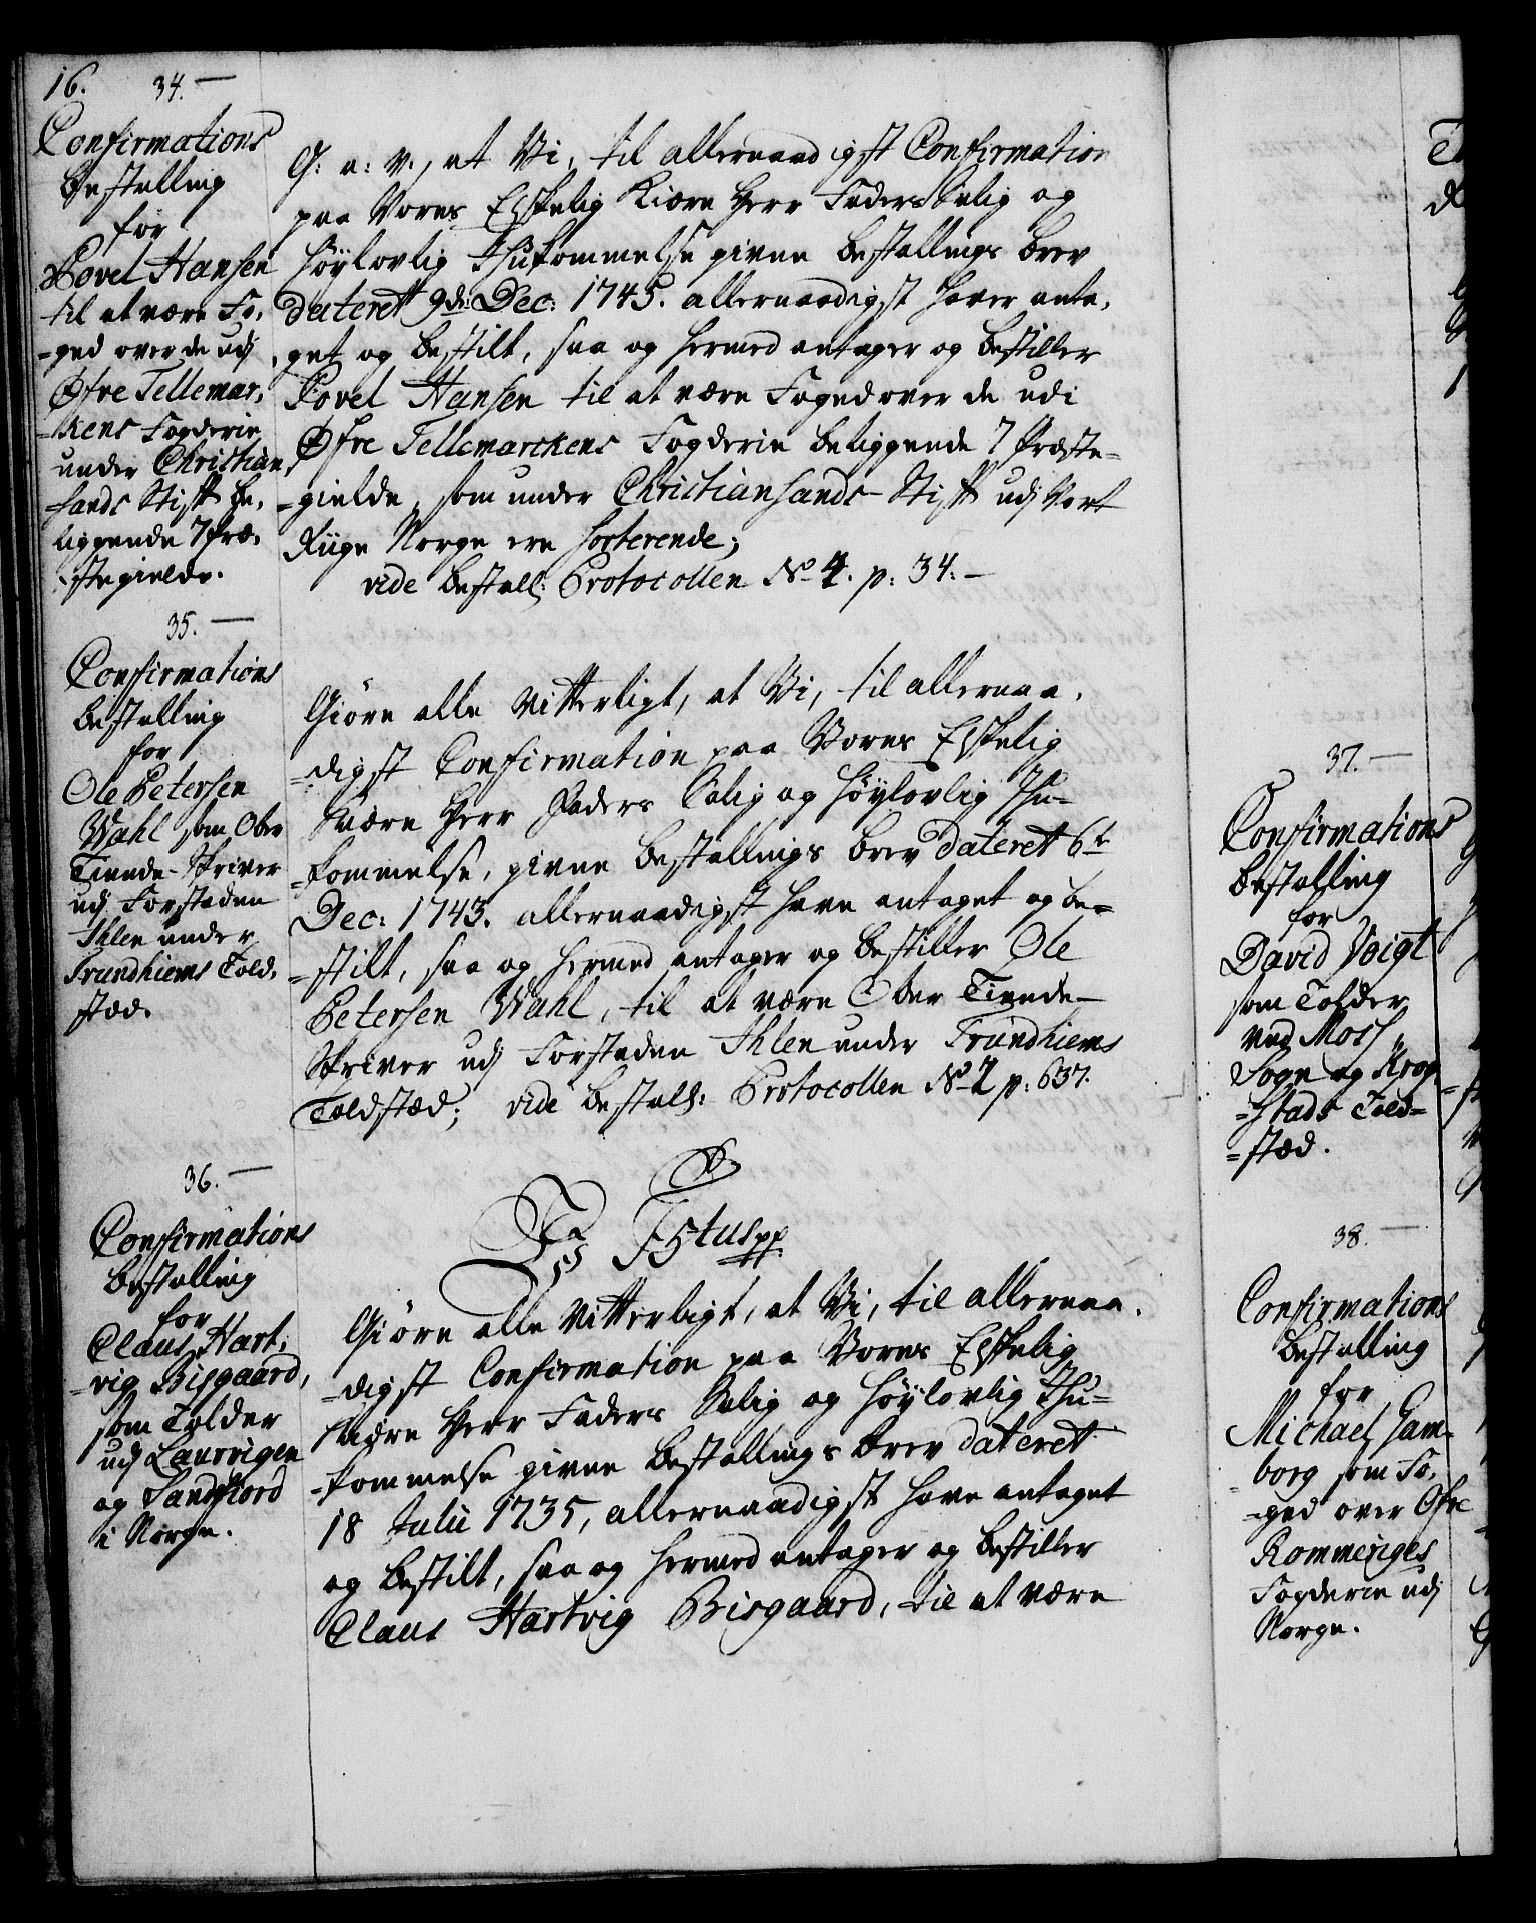 16.
34. —
Confirmations
Bestalling
for
Povel Hansen
til at være Fo-
=ged over de udj
Øfre Tellemar-
=kens Fogderie
under Christian
=sands Stift be-
liggende 7 Præ-
=stegielde.
G: a: v:, at Vi, til allernaadigst Confirmation
paa Vores Elskelig Kiære Herr Faders Salig og
Høylovlig Ihukommelse givne Bestallings brev
dateret 9de Dec: 1745. allernaadigst haver anta-
get og bestilt, saa og hermed antager og bestiller
Povel Hansen til at være Foged over de udi
Øfre Tellemarckens Fogderie beliggende 7 Præste-
=gielde, som under Christiansands Stift udj Vort
Riige Norge ere sorterende;
vide Bestall: Protocollen No 4. p: 34. —
35. —
Confirmations
Bestalling
for
Ole Petersen
Wahl som Ober
Tiende-Skriver
udj Forstaden
Ihlen under
Trundhiems Told-
stæd.
Giöre alle Vitterligt, at Vi, til allernaa-
=digst Confirmation paa Vores Elskelig
Kiære Herr Faders Salig og Høylovlig Ihu-
=kommelse, givne Bestallings brev dateret 6te
Dec: 1743. allernaadigst have antaget og be-
=stilt, saa og hermed antager og bestiller Ole
Petersen Wahl, til at være Ober Tiende-
Skriver udj Forstaden Ihlen under Trundhiems
Toldstæd; vide Bestall: Protocollen No 2 p: 637.
36. —
Confirmations
Bestalling
for
Claus Hart-
=vig Bisgaard,
som Tolder
udj Laurvigen
og Sandfiord
i Norge.
F5tus pp
Giöre alle Vitterligt, at Vi, til allernaa-
=digst Confirmation paa Vores Elskelig
Kiære Herr Faders Salig og Høylovlig Ihu-
=kommelse givne Bestallings brev dateret
18 Julii 1735, allernaadigst have antaget
og bestilt, saa og hermed antager og bestiller
Claus Hartvig Bisgaard, til at være
37. —
Confirmations
Bestalling
for
David Voigt
som Tolder
ved Moss,
Sogn og Krog-
=stads Told=
=stæd.
38.
Confirmations
Bestalling
for
Michael Gam-
borg som Fo-
=ged over Øfre
Rommeriges
Fogderie udj
Norge.